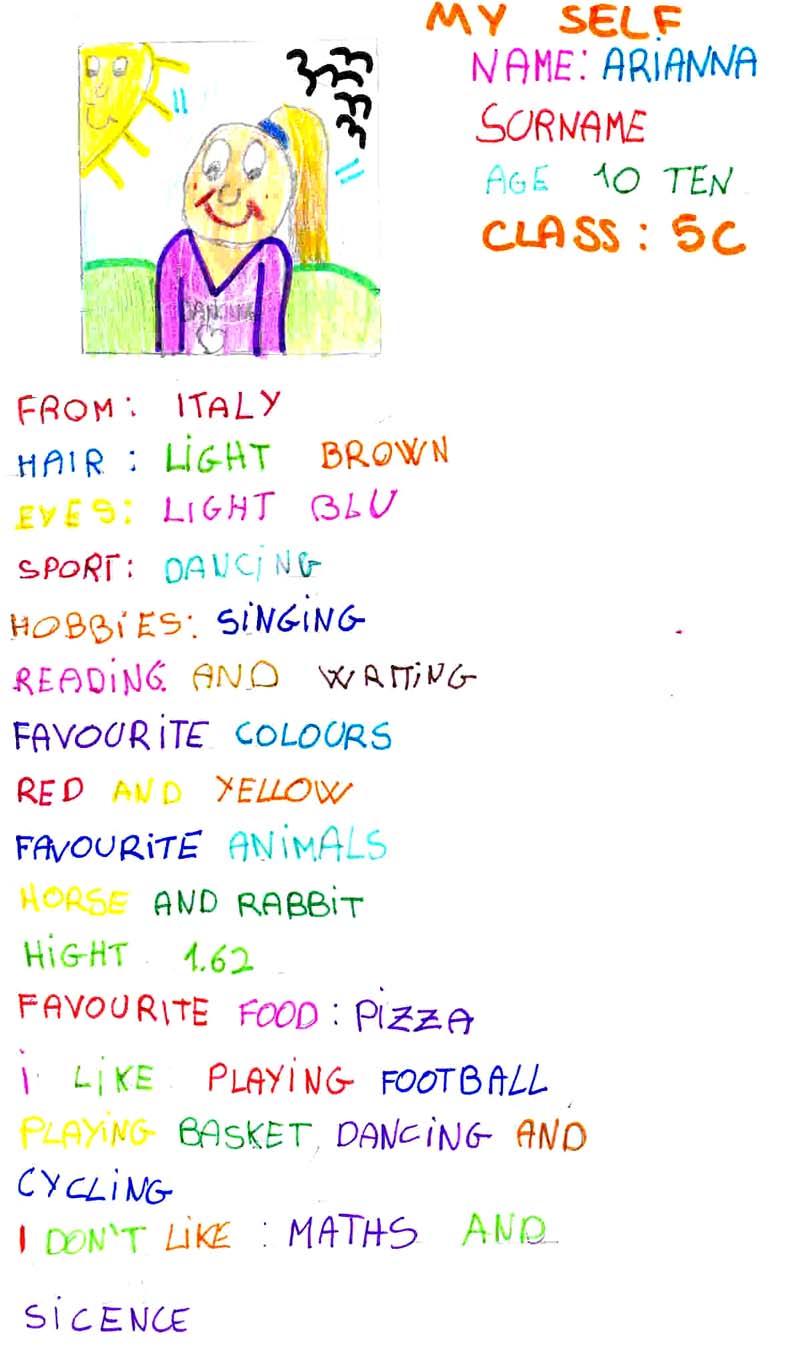 MY SELF
NAME: ARIANNA
SURNAME
AGE 10 TEN
CLASS: 5C
DANCING
FROM: ITALY
HAIR: LIGHT BROWN
EYES: LIGHT BLU
SPORT: DANCING
HOBBIES: SINGING
READING AND WRITING
FAVOURITE COLOURS
RED AND YELLOW
FAVOURITE ANIMALS
HORSE AND RABBIT
HIGHT 1.62
FAVOURITE FOOD: PIZZA
I LIKE PLAYING FOOTBALL
PLAYING BASKET, DANCING AND
CYCLING
I DON'T LIKE: MATHS AND
SICENCE